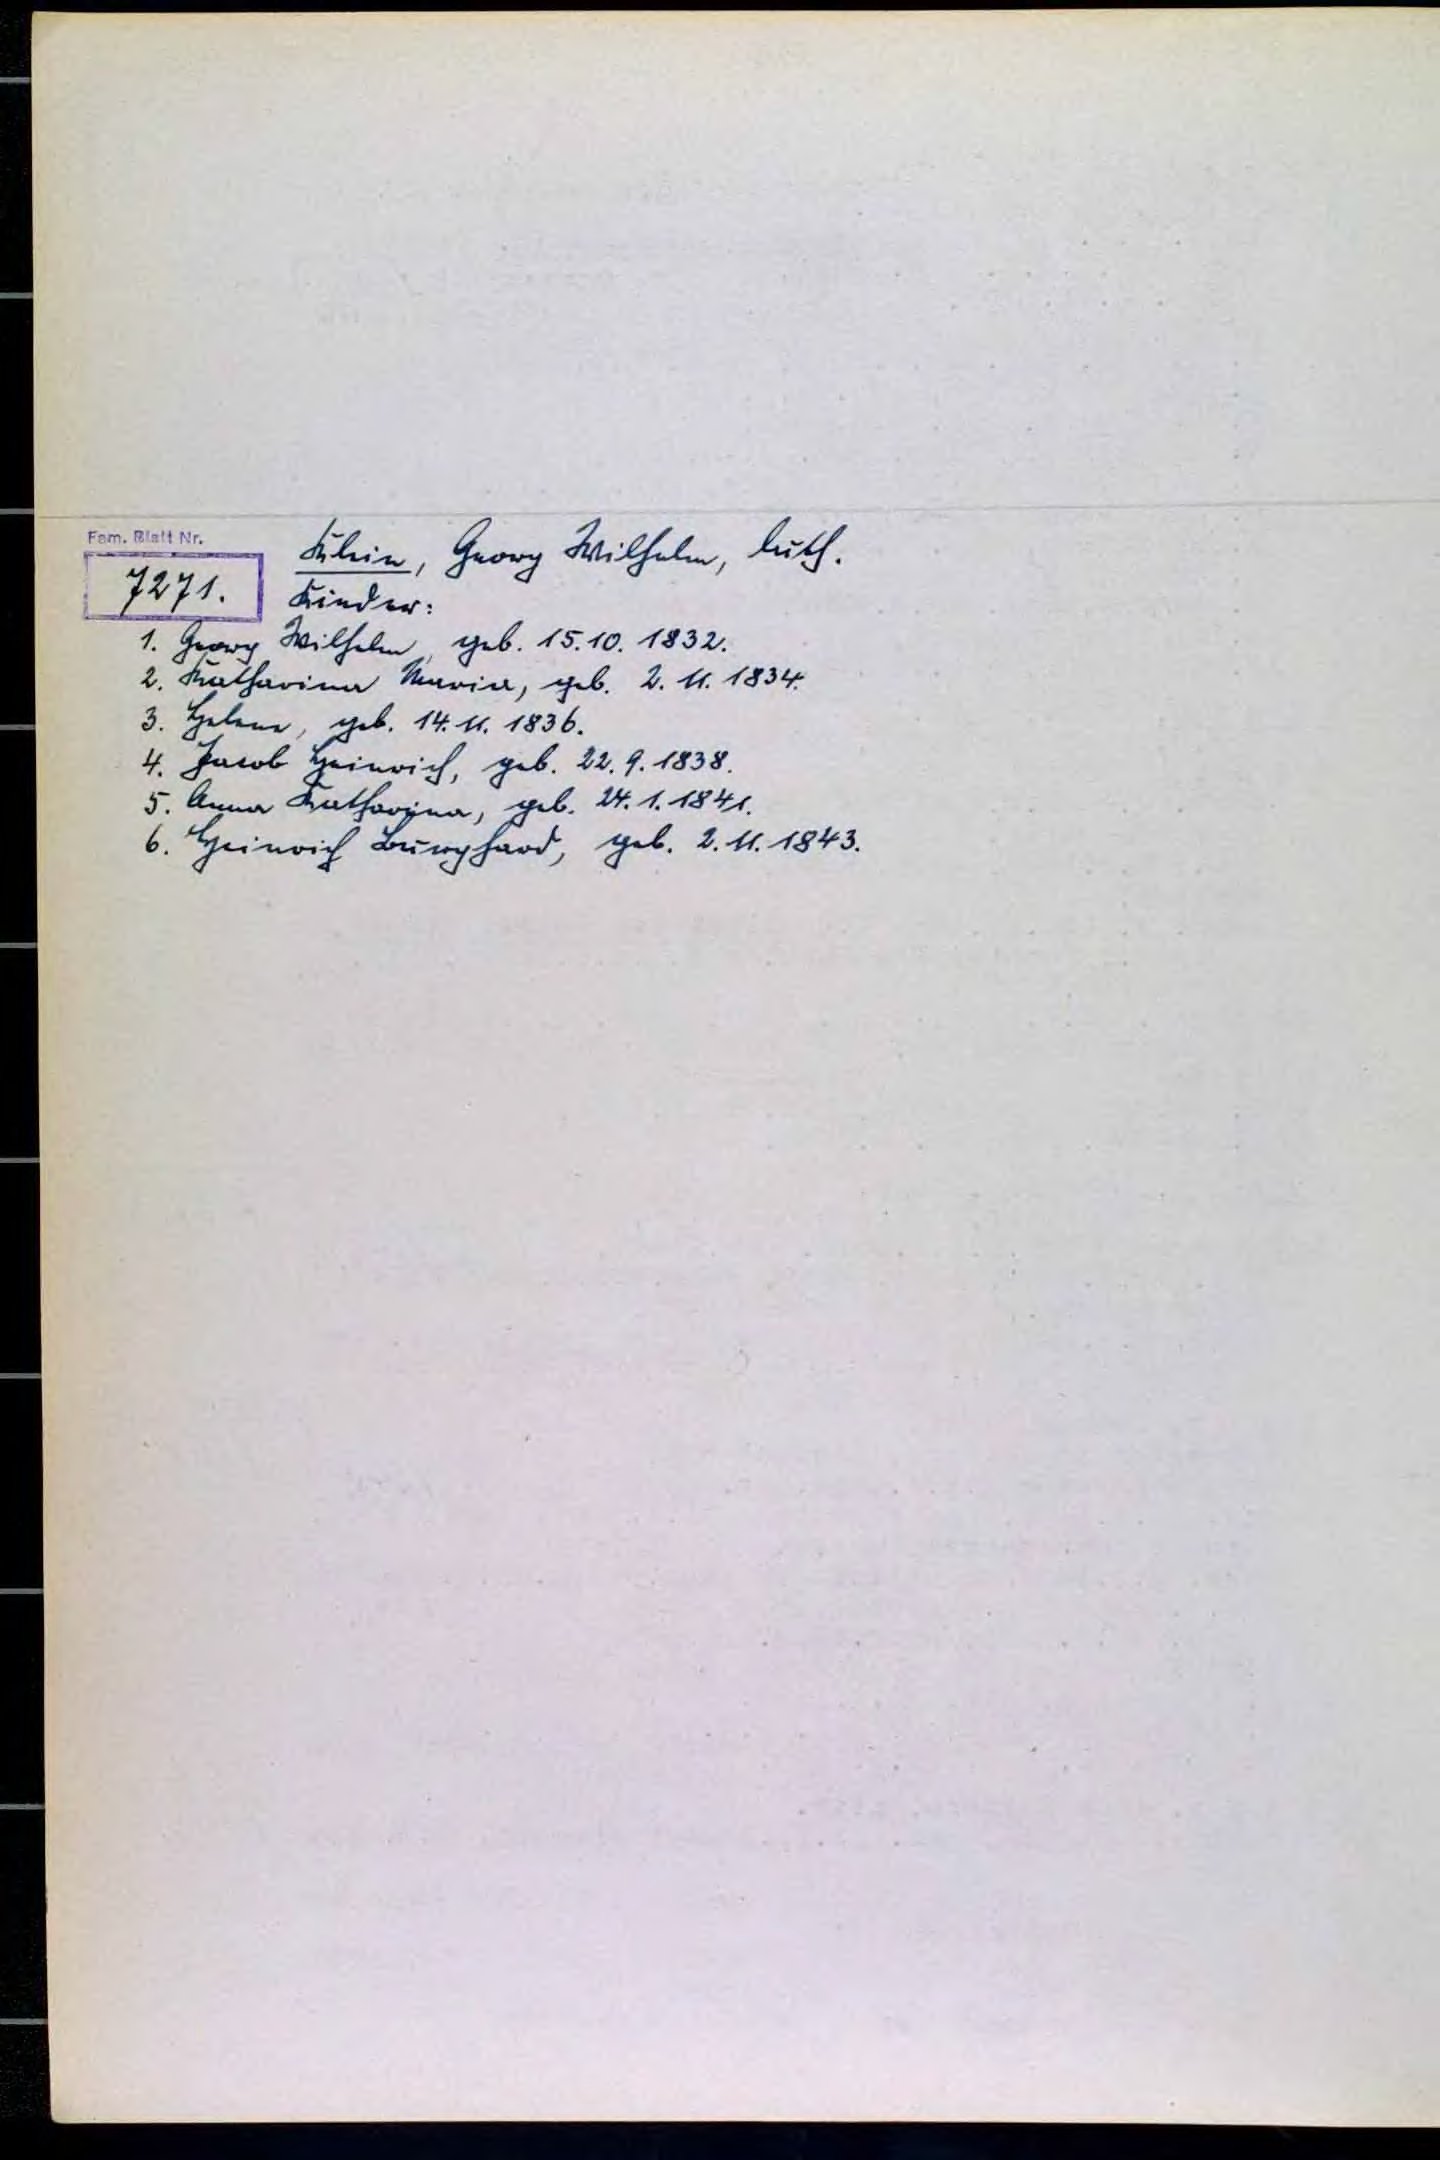 Fam. Blatt Nr.
7271.
Klein, Georg Wilhelm, luth.
Kinder:
1. Georg Wilhelm, geb. 15.10. 1832.
2. Katharina Maria, geb. 2. 11. 1834.
3. Helene, geb. 14. 11. 1836.
4. Jacob Heinrich, geb. 22. 9. 1838.
5. Anna Katharina, geb. 24. 1. 1841.
6. Heinrich Burghard, geb. 2. 11. 1843.